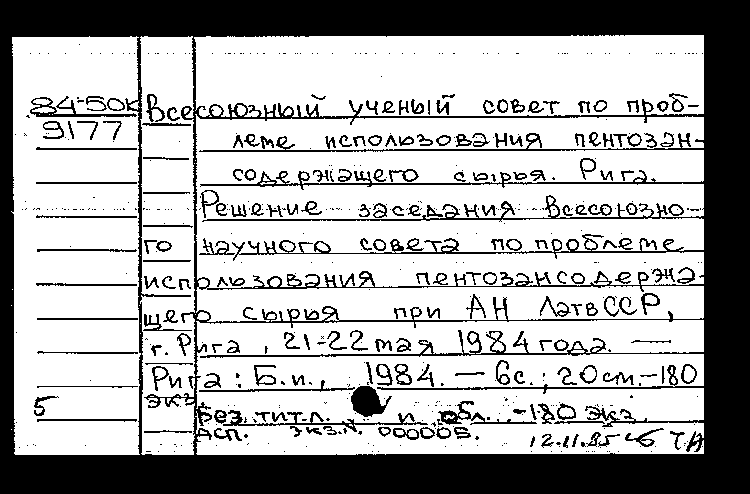 84-50к Всесоюзный ученый совет по проб-
9177 леме использования пентозан-
содержащего сырья. Рига.
Решение заседания Всесоюзно-
го научного совета по проблеме
использования пентозансодержа-
щего сырья при АН ЛатвССР,
г. Рига, 21-22 мая 1984 года. —
Рига: Б.и., 1984. — 6с.; 20см.-180
экз
5 Без тит.л. и обл. -180 экз.
асп. экз.N. 000005. 12.11.85